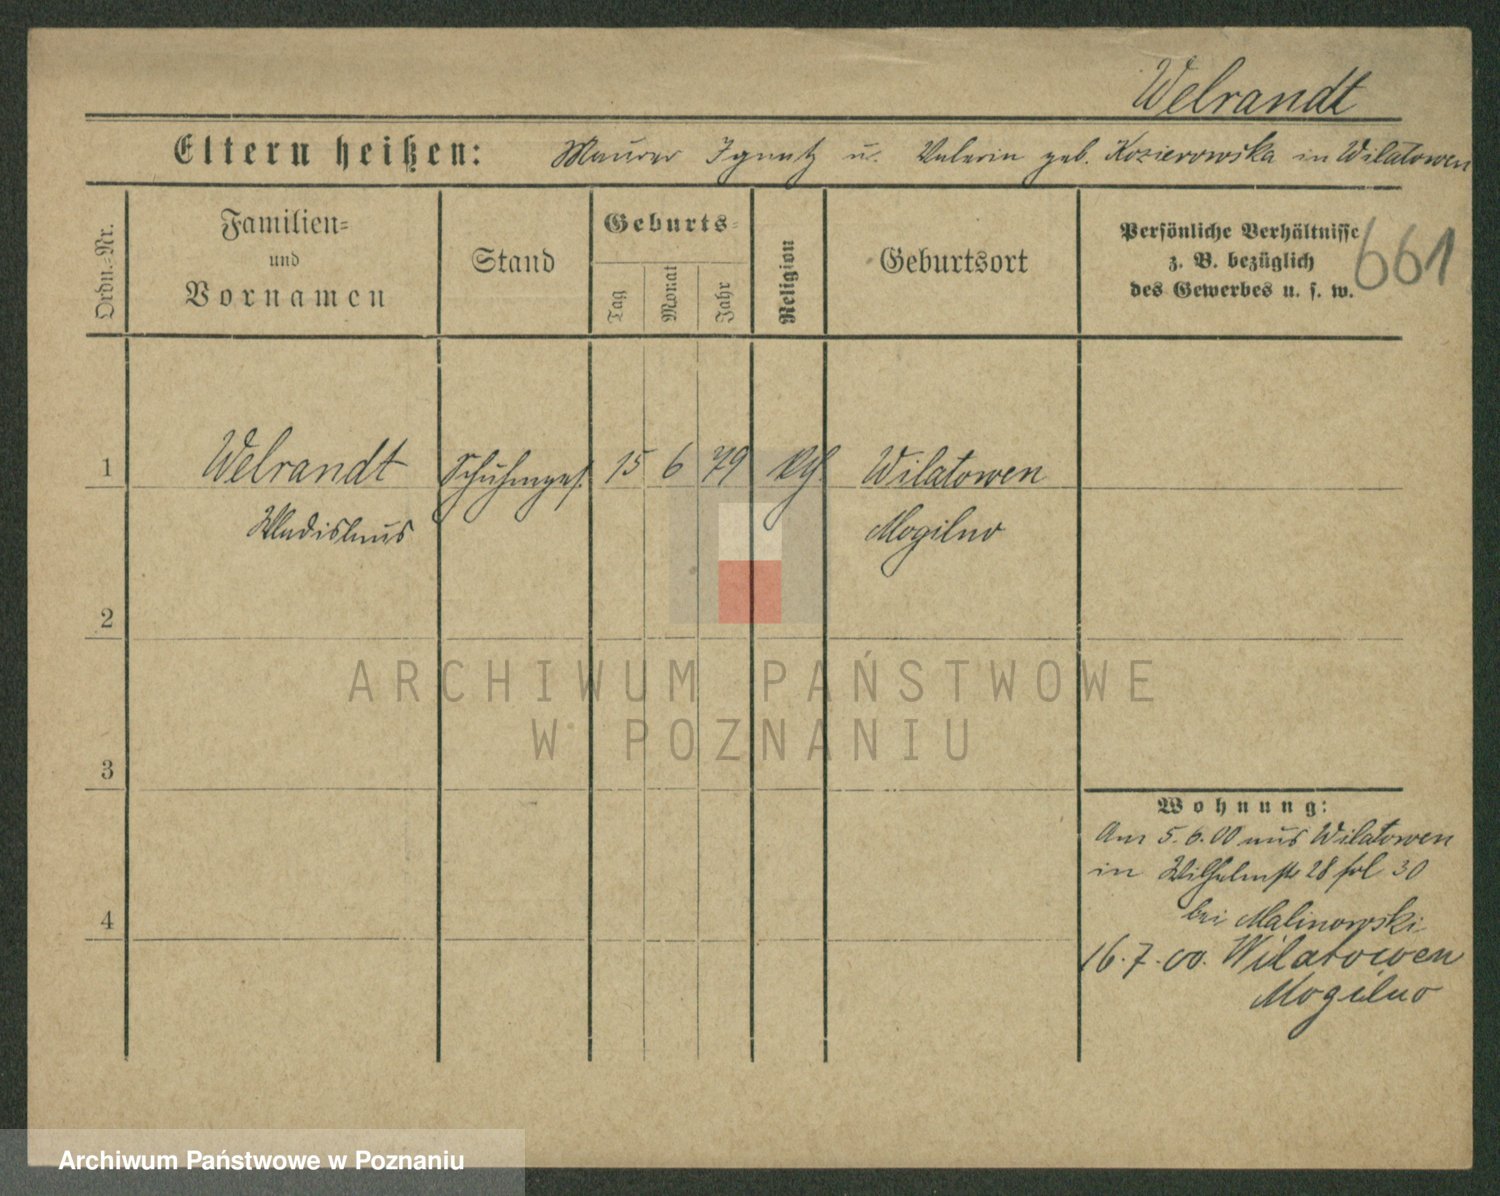 Welrandt
Eltern heißen: Maurer Ignatz u. Valeria geb. Kozierowska in Wilatowen
Ordn.-Nr.
Familien-
und
Vornamen
Stand
Geburts-
Tag
Monat
Jahr
Religion
Geburtsort
Persönliche Verhältnisse
z. B. bezüglich
des Gewerbes u. s. w.
661
1 Welrandt Schuhmges. 15 6 79 Wilatowen
Wladislaus Mogilno
2
ARCHIWUM PAŃSTWOWE
W POZNANIU
3
Wohnung:
Am 5.6.00 aus Wilatowen
in Wilhelmstr 28 fol 30
bei Malinowski
4
16.7.00. Wilatowen
Mogilno
Archiwum Państwowe w Poznaniu